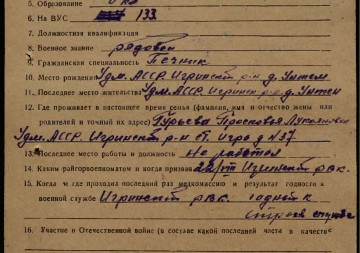 5. Образование
6. На ВУС 133.
7. Должностная квалификация
8. Военное звание рядовой
9. Гражданская специальность Печник
10. Место рождения Удм. АССР. Игринский р-н д.
11. Последнее место жительства Удм. АССР. Игринск р-н. д.
12. Где проживает в настоящее время семья (фамилия, имя и отчество жены или
родителей и точный их адрес) Гурьева Просковья Лукяновна
Удм. АССР. Игринский р-н ст. Игра д N37
13. Последнее место работы и должность не работал
14. Каким райгорвоенкоматом и когда призван 22/VIII Игринский рвк.
15. Когда и где проходил последний раз медкомиссию и результат годности к
военной службе Игринский рвк. годный к
строев службе
16. Участие в Отечественной войне (в составе какой последней части в качестве